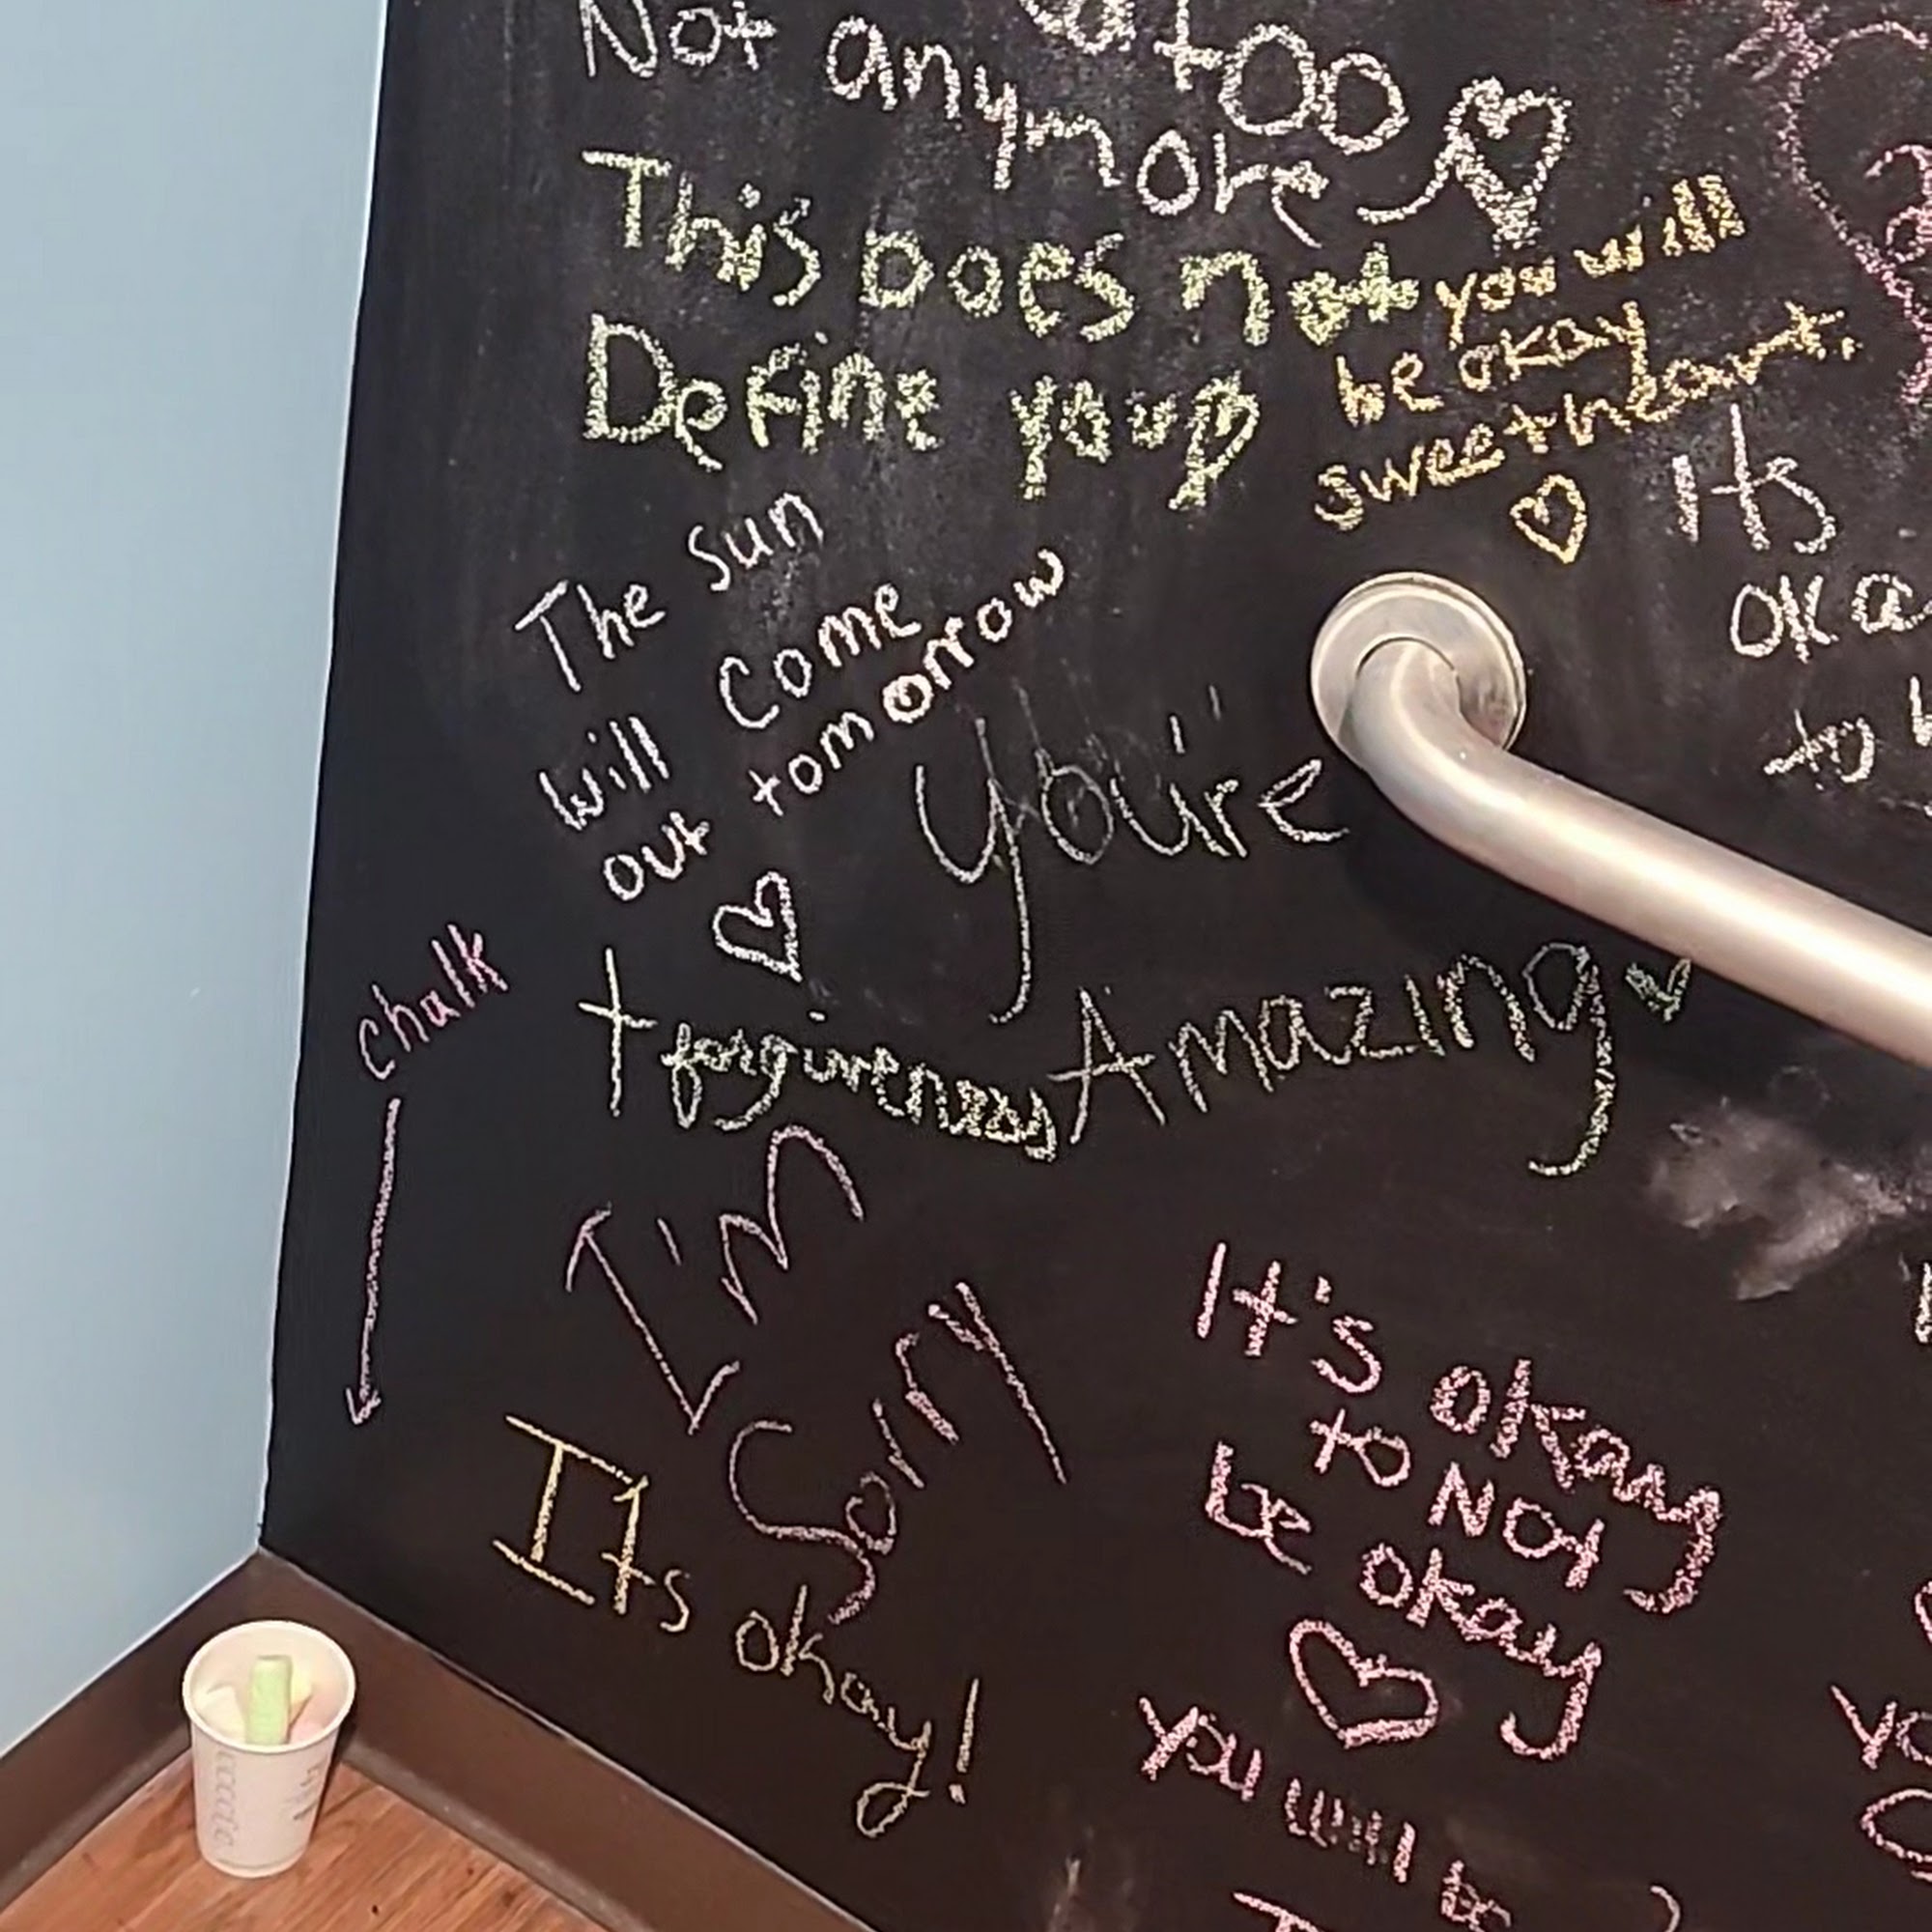 too
Not anymore
This Does not
Define you
you will
be okay
sweetheart.
Its
oka
to
The sun
will come
out tomorrow
You're
Amazing
chalk
+ forgiveness
I'm
Sorry
Its okay!
It's okay
to NOT
be okay
you will be